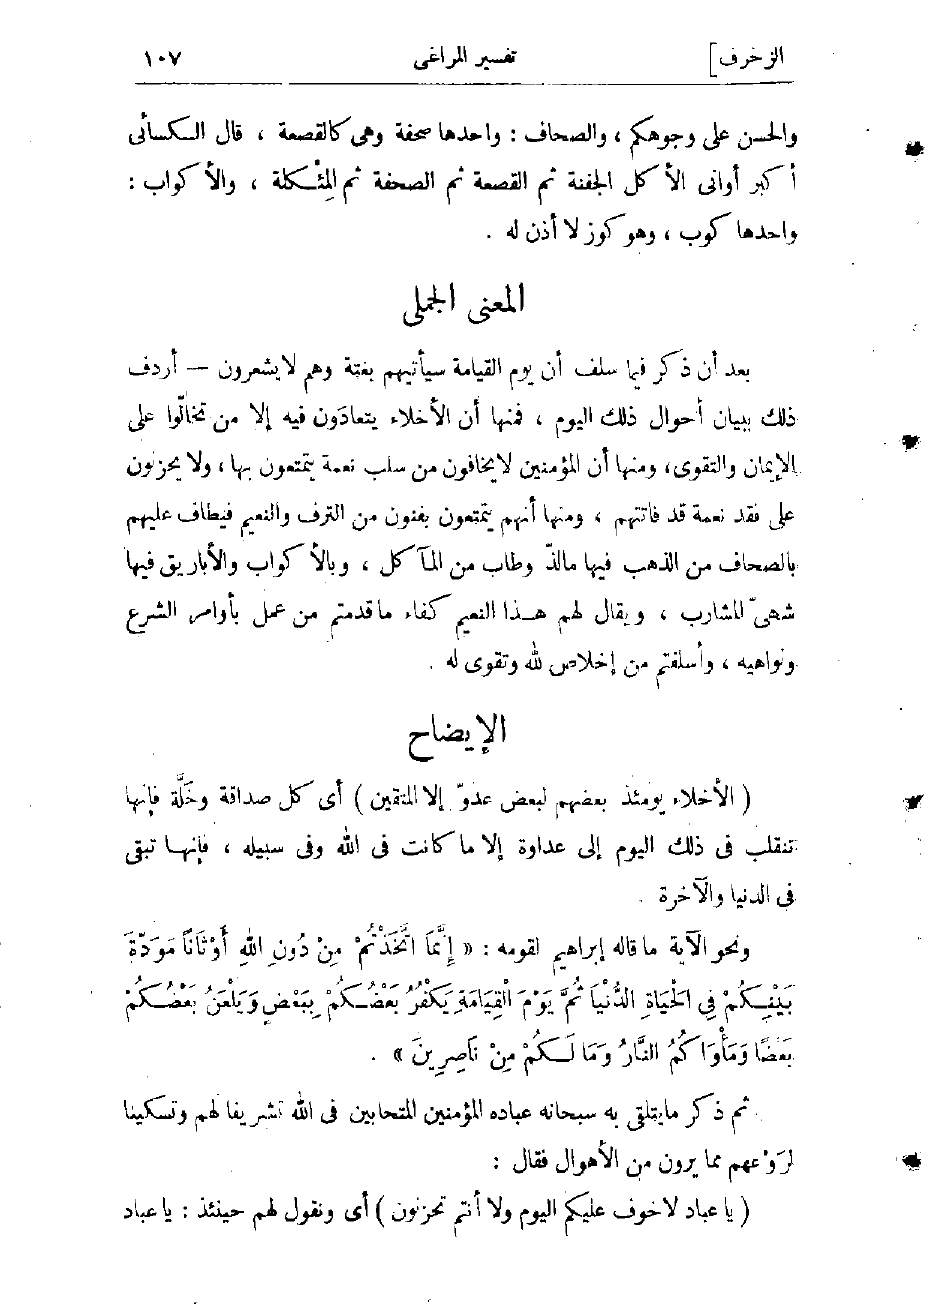 الزخرف] تفسير المراغى ١٠٧
والحسن على وجوهكم ، والصحاف : واحدها صحفة وهى كالقصعة ، قال الكسائى
أكبر أوانى الأكل الجفنة ثم القصعة ثم الصحفة ثم المِئْكلة ، والأكواب :
واحدها كوب ، وهو كوز لا أذن له .
المعنى الجملى
بعد أن ذكر فيما سلف أن يوم القيامة سيأتيهم بغتة وهم لا يشعرون — أردف
ذلك ببيان أحوال ذلك اليوم ، فمنها أن الأخلاء يتعادَون فيه إلا من تخالّوا على
الإيمان والتقوى، ومنها أن المؤمنين لا يخافون من سلب نعمة يتمتعون بها، ولا يحزنون
على فقد نعمة قد فاتتهم ، ومنها أنهم يتمتعون بفنون من الترف والنعيم فيطاف عليهم
بالصحاف من الذهب فيها مالذّ وطاب من المآكل ، وبالأكواب والأباريق فيها
شهىّ المشارب ، ويقال لهم هذا النعيم كفاء ما قدمتم من عمل بأوامر الشرع
ونواهيه ، وأسلفتم من إخلاص لله وتقوى له .
الإيضاح
( الأخلاء يومئذ بعضهم لبعض عدوّ إلا المتقين ) أى كل صداقة وخَلَّة فإنها
تنقلب فى ذلك اليوم إلى عداوة إلا ما كانت فى الله وفى سبيله ، فإنها تبقى
فى الدنيا والآخرة .
ونحو الآية ما قاله إبراهيم لقومه : « إِنَّمَا اتَّخَذْتُمْ مِنْ دُونِ اللهِ أَوْثَانًا مَوَدَّةَ
بَيْنِكُمْ فِى الْحَيَاةِ الدُّنْيَا ثُمَّ يَوْمَ الْقِيَامَةِ يَكْفُرُ بَعْضُكُمْ بِبَعْضٍ وَيَلْعَنُ بَعْضُكُمْ
بَعْضًا وَمَأْوَاكُمُ النَّارُ وَمَا لَكُمْ مِنْ نَاصِرِينَ » .
ثم ذكر ما يتلقى به سبحانه عباده المؤمنين المتحابين فى الله تشريفا لهم وتسكينا
لرَوْعهم مما يرون من الأهوال فقال :
( يا عباد لا خوف عليكم اليوم ولا أنتم تحزنون ) أى ونقول لهم حينئذ : يا عباد